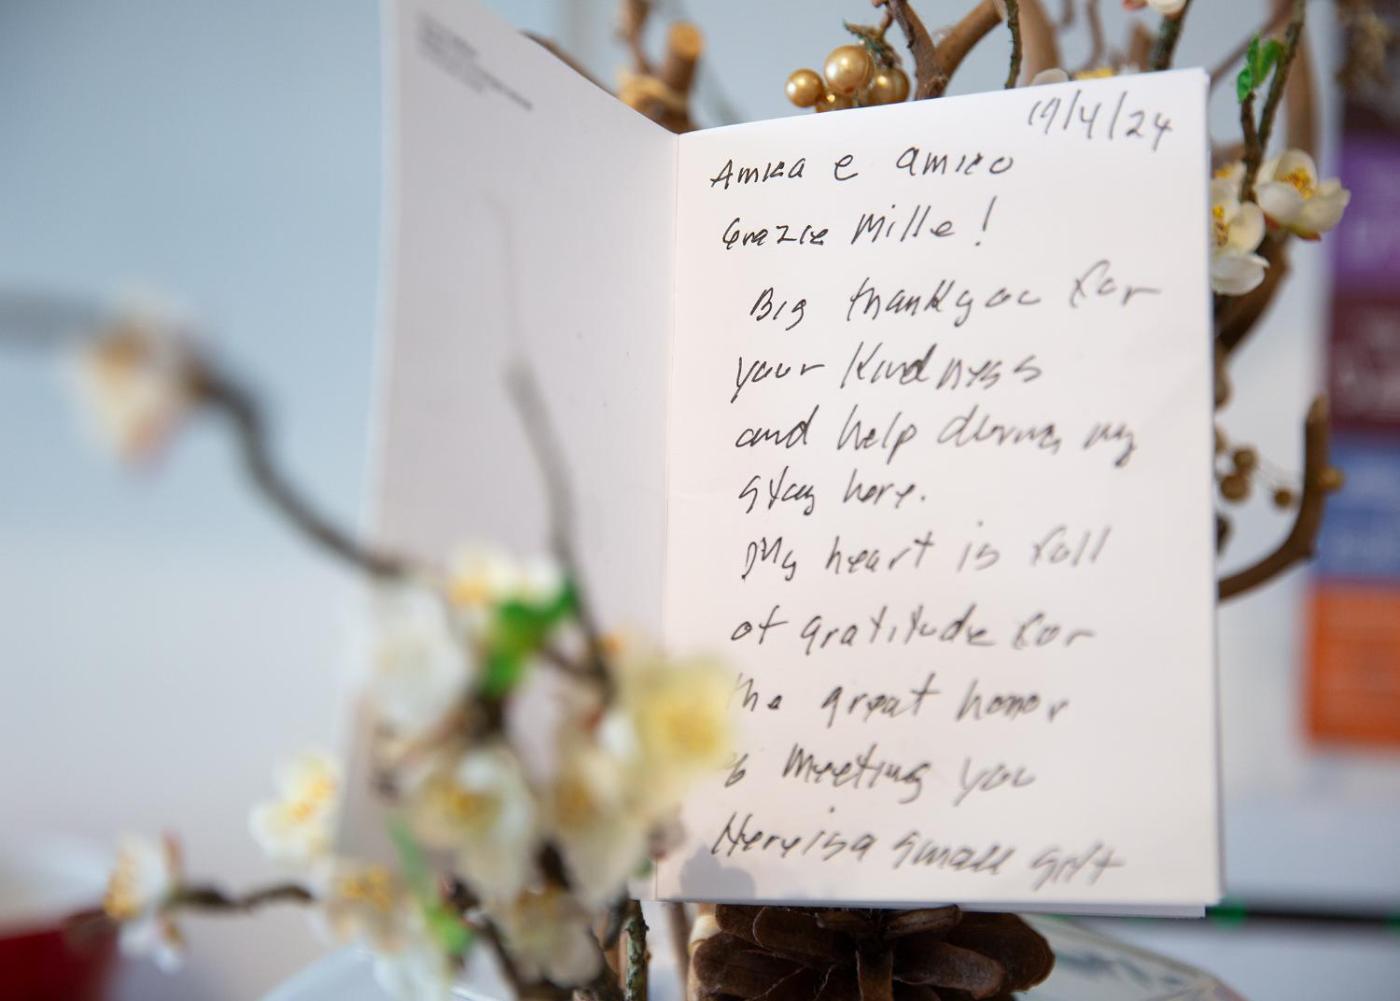 19/4/24
Amica e amico
Grazie Mille!
Big thankyou for
your Kindness
and help during my
stay here.
My heart is full
of gratitude for
the great honor
of meeting you
Here is a small gift